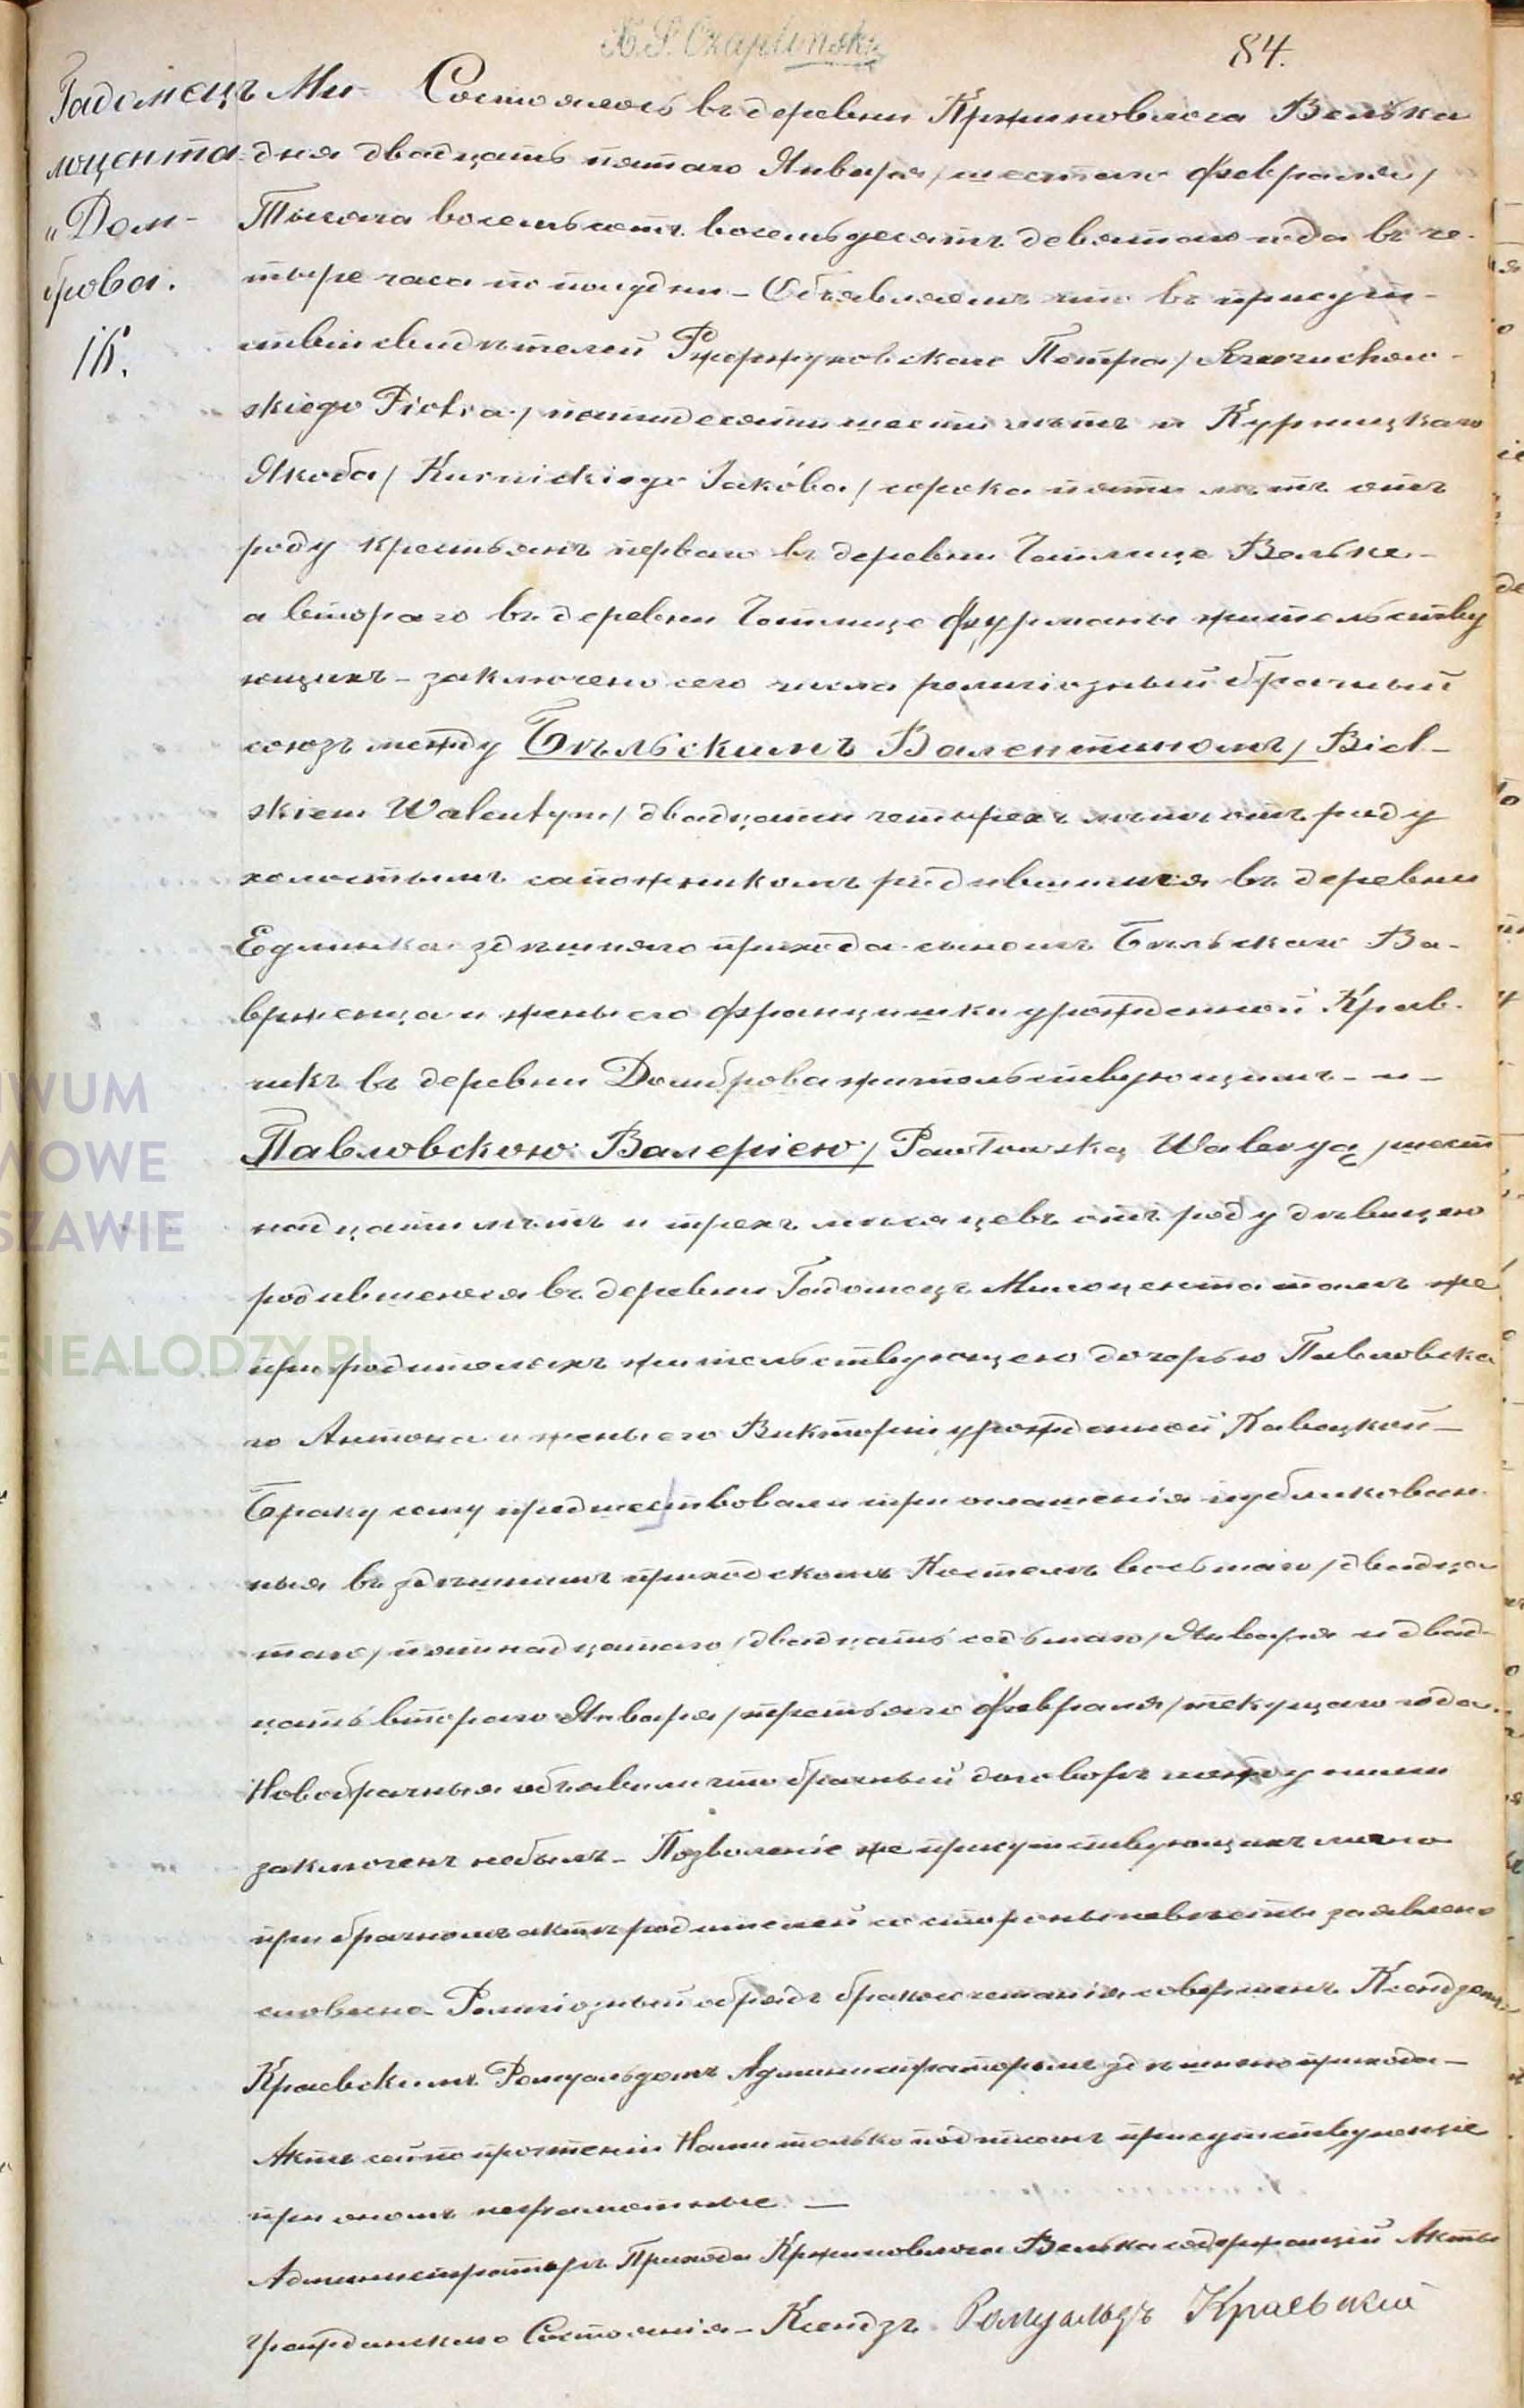 X. S. Czapliński
84.
Гадомецъ Ми-
лоцента
"Дом-
брова.
16.
Состоялось въ деревни Кржиновлога Велька
дня двадцать пятаго Января /шестаго Февраля/
Тысяча восемьсотъ восемьдесятъ девятаго года въ че-
тыре часа по полудни – Объявляемъ что въ присут-
ствіи свидѣтелей Петра /
skiego Piotra / пятидесяти шести лѣтъ и Курницкаго
Якоба / Kurnickiego Jakóba / сорока пяти лѣтъ отъ
роду крестьянъ перваго въ деревни Чаплице Вельке –
а втораго въ деревни Чаплице Фурманы жительству
ющихъ – заключено сего числа религіозный брачный
союзъ между Бѣльскимъ Валентиномъ / Biel-
skiem Walentym / двадцати четырехъ лѣтъ отъ роду
холостымъ сапожникомъ родившимся въ деревни
Едлинка здѣшняго прихода сыномъ Бѣльскаго Ва-
вржинца и жены его Францишки урожденной Крав-
чикъ въ деревни Домброва жительствующимъ – и –
Павловскою Валеріею / Pawłowską Waleryą / шест
надцати лѣтъ и трехъ мѣсяцевъ отъ роду дѣвицею
родившеюся въ деревни Гадомецъ Милоцента тамъ же
при родителяхъ жительствующею дочерью Павловска
го Антона и жены его Викторіи урожденной –
Браку сему предшествовали три оглашенія публикован-
ныя въ здѣшнимъ приходскомъ Костелѣ восьмаго / двадца
таго / пятнадцатаго / двадцать седьмаго / Января и двад-
цать втораго Января / третьяго Февраля / текущаго года.
Новобрачныя объявили что брачный договоръ между ними
заключенъ небылъ – Позволеніе же присутствующихъ лично
при брачномъ актѣ родителей со стороны невѣсты заявлено
словесно – Религіозный обрядъ бракосочетанія совершенъ Ксендзомъ
Краевскимъ Ромуальдомъ Администраторомъ здѣшняго прихода –
Актъ сей по прочтеніи Нами только подписанъ присутствующіе
при ономъ неграмотные –
Администраторъ Прихода Кржиновлога Велька содержащій Акты
Гражданскаго Состоянія – Ксендзъ Ромуальдъ Краевскій
IWUM
WOWE
SZAWIE
ENEALODZY.PL